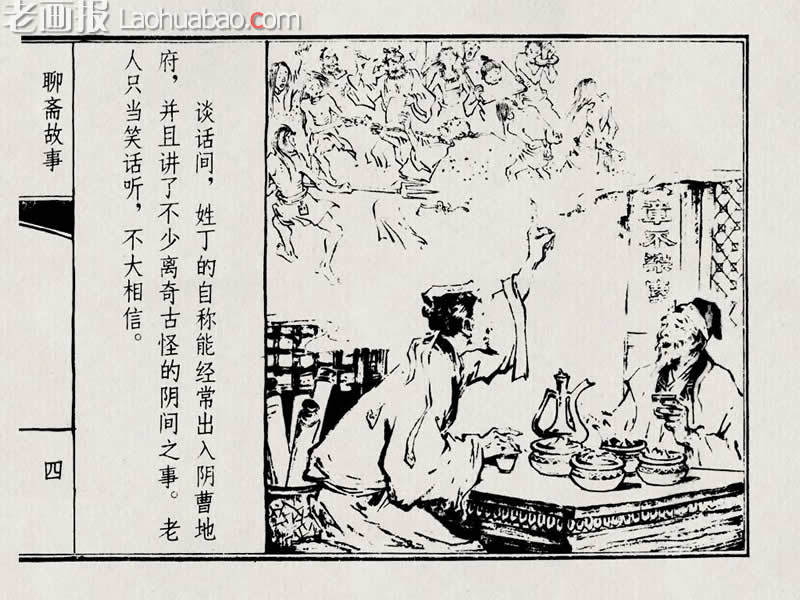 老画报 Laohuabao.com
谈话间，姓丁的自称能经常出入阴曹地
府，并且讲了不少离奇古怪的阴间之事。老
人只当笑话听，不大相信。
聊斋故事
四